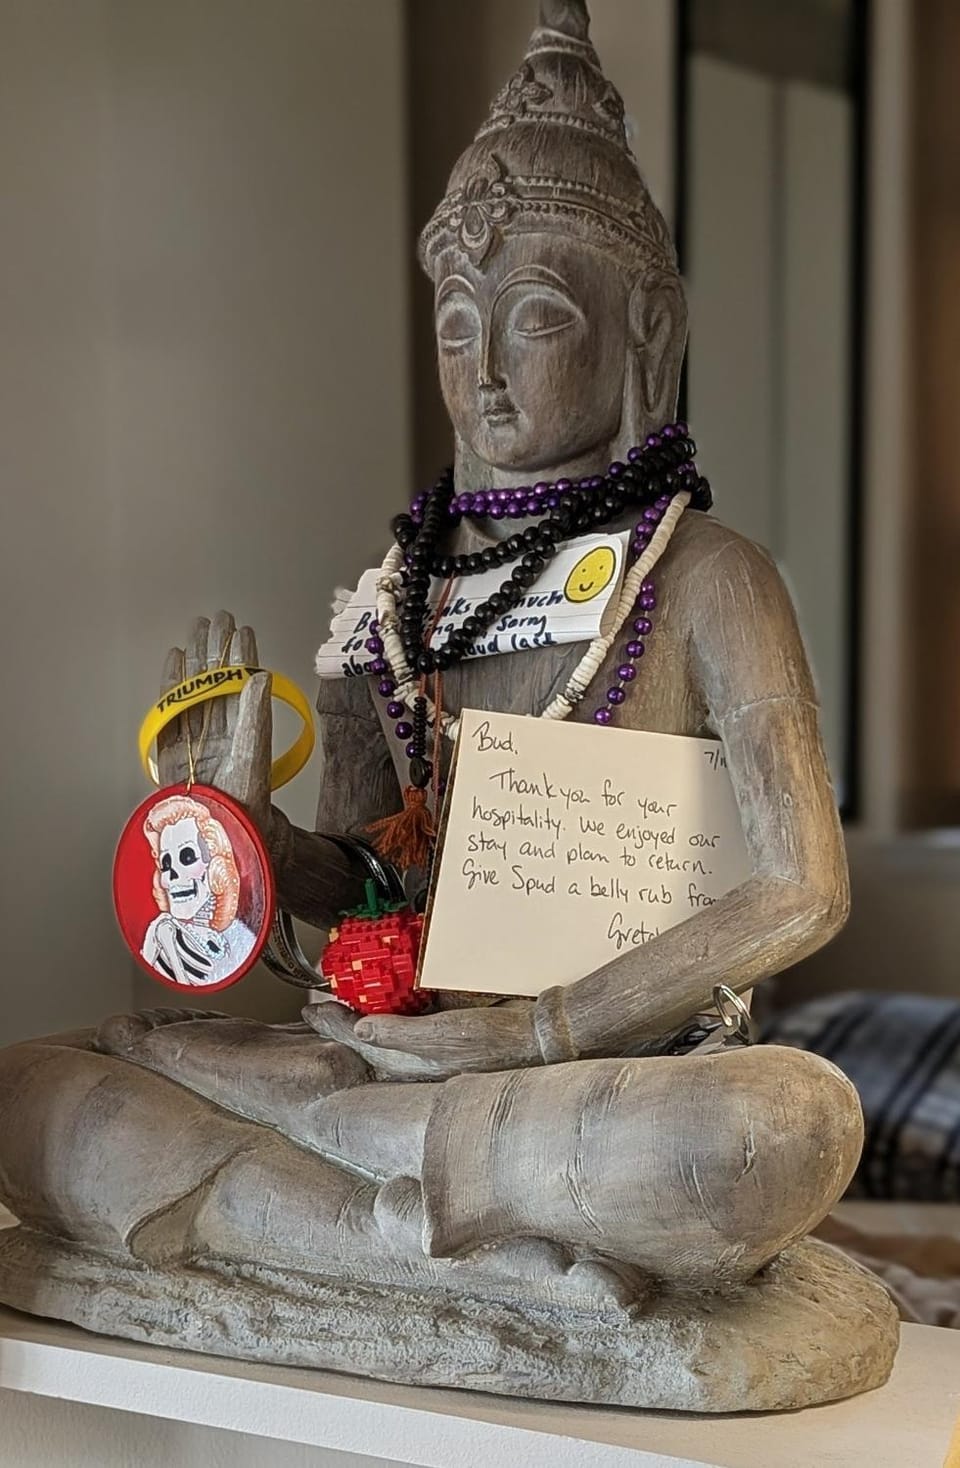 thanks much
Sorry
loud last
TRIUMPH
Bud,
7/1
Thank you for your
hospitality. We enjoyed our
stay and plan to return.
Give Spud a belly rub